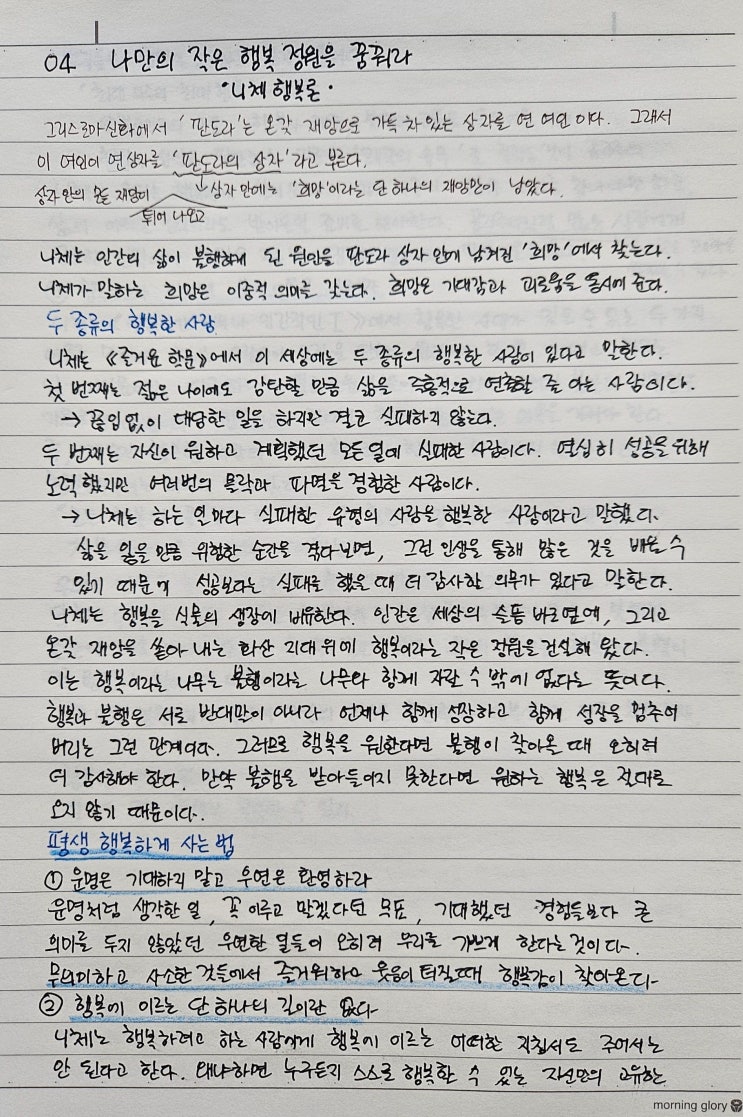 04 나만의 작은 행복 정원을 꿈꿔라
·니체 행복론·
그리스로마신화에서 '판도라'는 온갖 재앙으로 가득 차 있는 상자를 연 여인이다. 그래서
이 여인이 연 상자를 '판도라의 상자'라고 부른다.
상자 안의 온갖 재앙이 튀어 나오고 → 상자 안에는 '희망'이라는 단 하나의 재앙만이 남았다.
니체는 인간의 삶이 불행하게 된 원인을 판도라 상자 안에 남겨진 '희망'에서 찾는다.
니체가 말하는 희망은 이중적 의미를 갖는다. 희망은 기대감과 괴로움을 동시에 준다.
두 종류의 행복한 사람
니체는 《즐거운 학문》에서 이 세상에는 두 종류의 행복한 사람이 있다고 말한다.
첫 번째는 젊은 나이에도 감탄할 만큼 삶을 즉흥적으로 연출할 줄 아는 사람이다.
→ 끊임없이 대담한 일을 하지만 결코 실패하지 않는다.
두 번째는 자신이 원하고 계획했던 모든 일에 실패한 사람이다. 열심히 성공을 위해
노력했지만 여러번의 몰락과 파멸을 경험한 사람이다.
→ 니체는 하는 일마다 실패한 유형의 사람을 행복한 사람이라고 말했다.
삶을 잃을 만큼 위험한 순간을 겪다보면, 그런 인생을 통해 많은 것을 배울 수
있기 때문에 성공보다는 실패를 했을 때 더 감사할 의무가 있다고 말한다.
니체는 행복을 식물의 생장에 비유한다. 인간은 세상의 슬픔 바로 옆에, 그리고
온갖 재앙을 쏟아 내는 화산 지대 위에 행복이라는 작은 정원을 건설해 왔다.
이는 행복이라는 나무는 불행이라는 나무와 함께 자랄 수 밖에 없다는 뜻이다.
행복과 불행은 서로 반대말이 아니라 언제나 함께 성장하고 함께 성장을 멈추어
버리는 그런 관계이다. 그러므로 행복을 원한다면 불행이 찾아올 때 오히려
더 감사해야 한다. 만약 불행을 받아들이지 못한다면 원하는 행복은 절대로
오지 않기 때문이다.
평생 행복하게 사는 법
① 운명은 기대하지 말고 우연은 환영하라
운명처럼 생각한 일, 꼭 이루고 말겠다던 목표, 기대했던 경험들보다 큰
의미를 두지 않았던 우연한 일들이 오히려 우리를 기쁘게 한다는 것이다.
무의미하고 사소한 것들에서 즐거워하고 웃음이 터질 때 행복감이 찾아온다.
② 행복에 이르는 단 하나의 길이란 없다
니체는 행복하려고 하는 사람에게 행복에 이르는 어떠한 지침서도 주어서는
안 된다고 한다. 왜냐하면 누구든지 스스로 행복할 수 있는 자신만의 고유한
morning glory